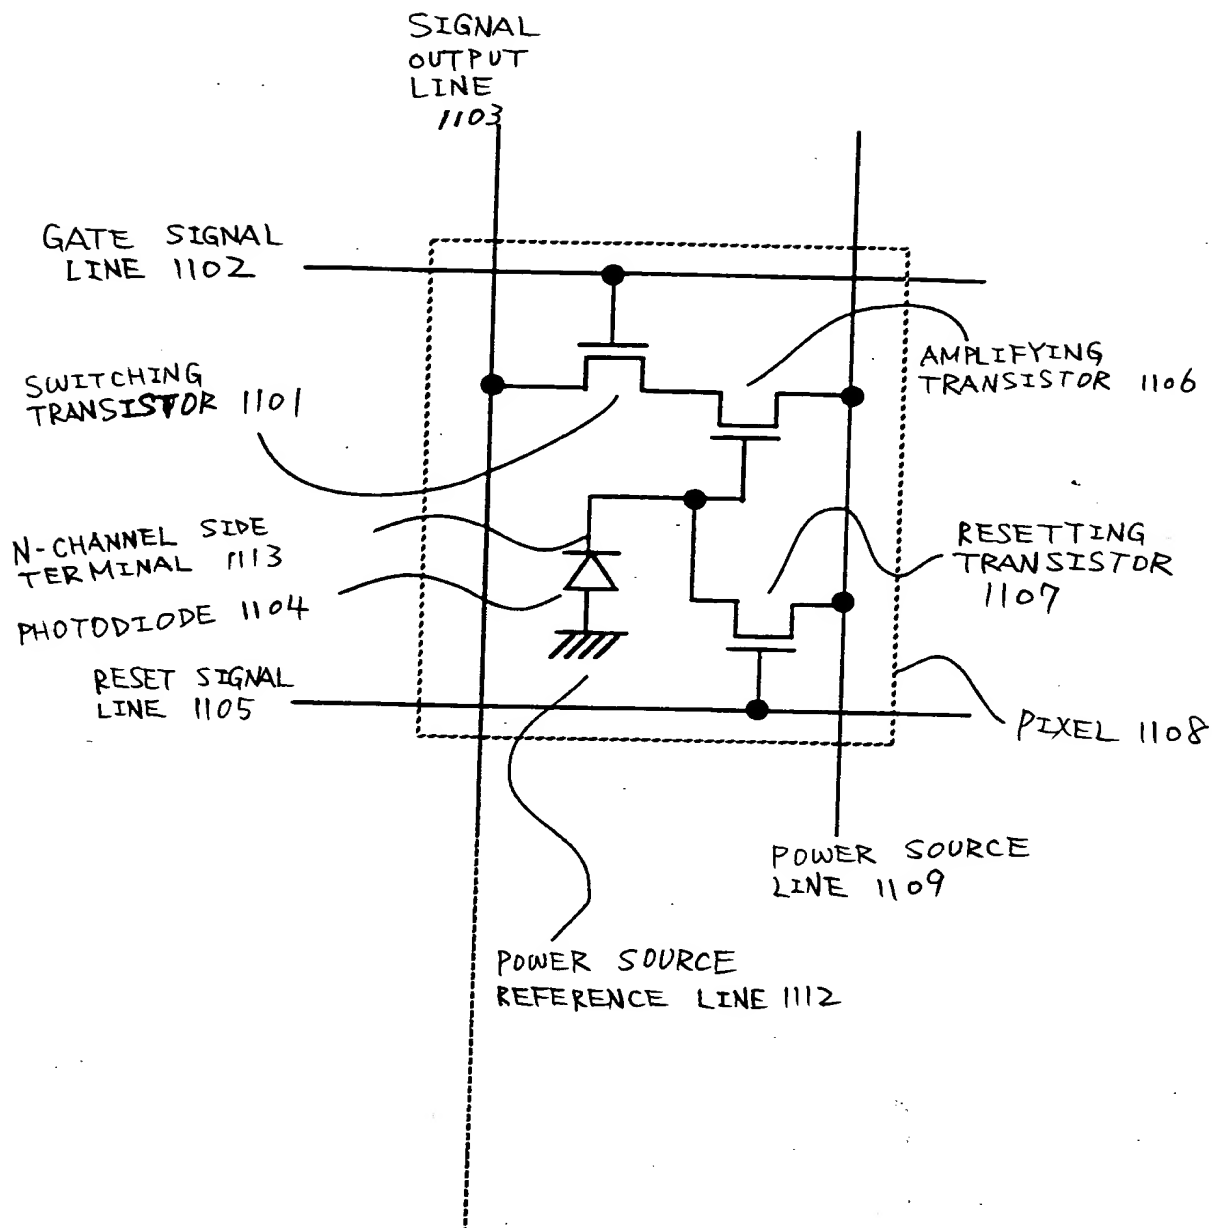 SIGNAL
OUTPUT
LINE
1103
GATE SIGNAL
LINE 1102
SWITCHING
TRANSISTOR 1101
AMPLIFYING
TRANSISTOR 1106
N-CHANNEL SIDE
TERMINAL 1113
PHOTODIODE 1104
RESETTING
TRANSISTOR
1107
RESET SIGNAL
LINE 1105
PIXEL 1108
POWER SOURCE
LINE 1109
POWER SOURCE
REFERENCE LINE 1112